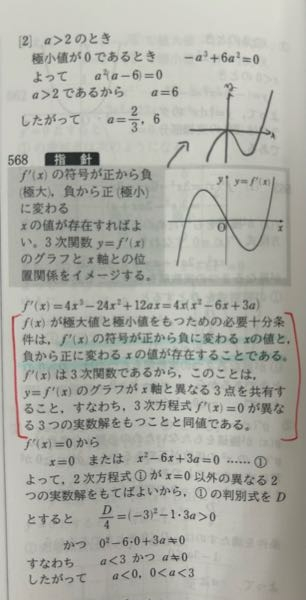 [2] a>2 のとき
極小値が0であるとき −a³+6a²=0
よって a²(a−6)=0
a>2 であるから a=6
したがって a=2/3, 6
568 指針
f′(x) の符号が正から負
(極大), 負から正(極小)
に変わる
x の値が存在すればよ
い。3次関数 y=f′(x)
のグラフと x 軸との位
置関係をイメージする。
y y=f′(x)
O x
f′(x)=4x³−24x²+12ax=4x(x²−6x+3a)
f(x) が極大値と極小値をもつための必要十分条
件は, f′(x) の符号が正から負に変わる x の値と,
負から正に変わる x の値が存在することである。
f′(x) は3次関数であるから, このことは,
y=f′(x) のグラフが x 軸と異なる3点を共有す
ること, すなわち, 3次方程式 f′(x)=0 が異な
る3つの実数解をもつことと同値である。
f′(x)=0 から
x=0 または x²−6x+3a=0 ……①
よって, 2次方程式①が x=0 以外の異なる2
つの実数解をもてばよいから, ①の判別式を D
とすると D/4=(−3)²−1·3a>0
かつ 0²−6·0+3a≠0
すなわち a<3 かつ a≠0
したがって a<0, 0<a<3